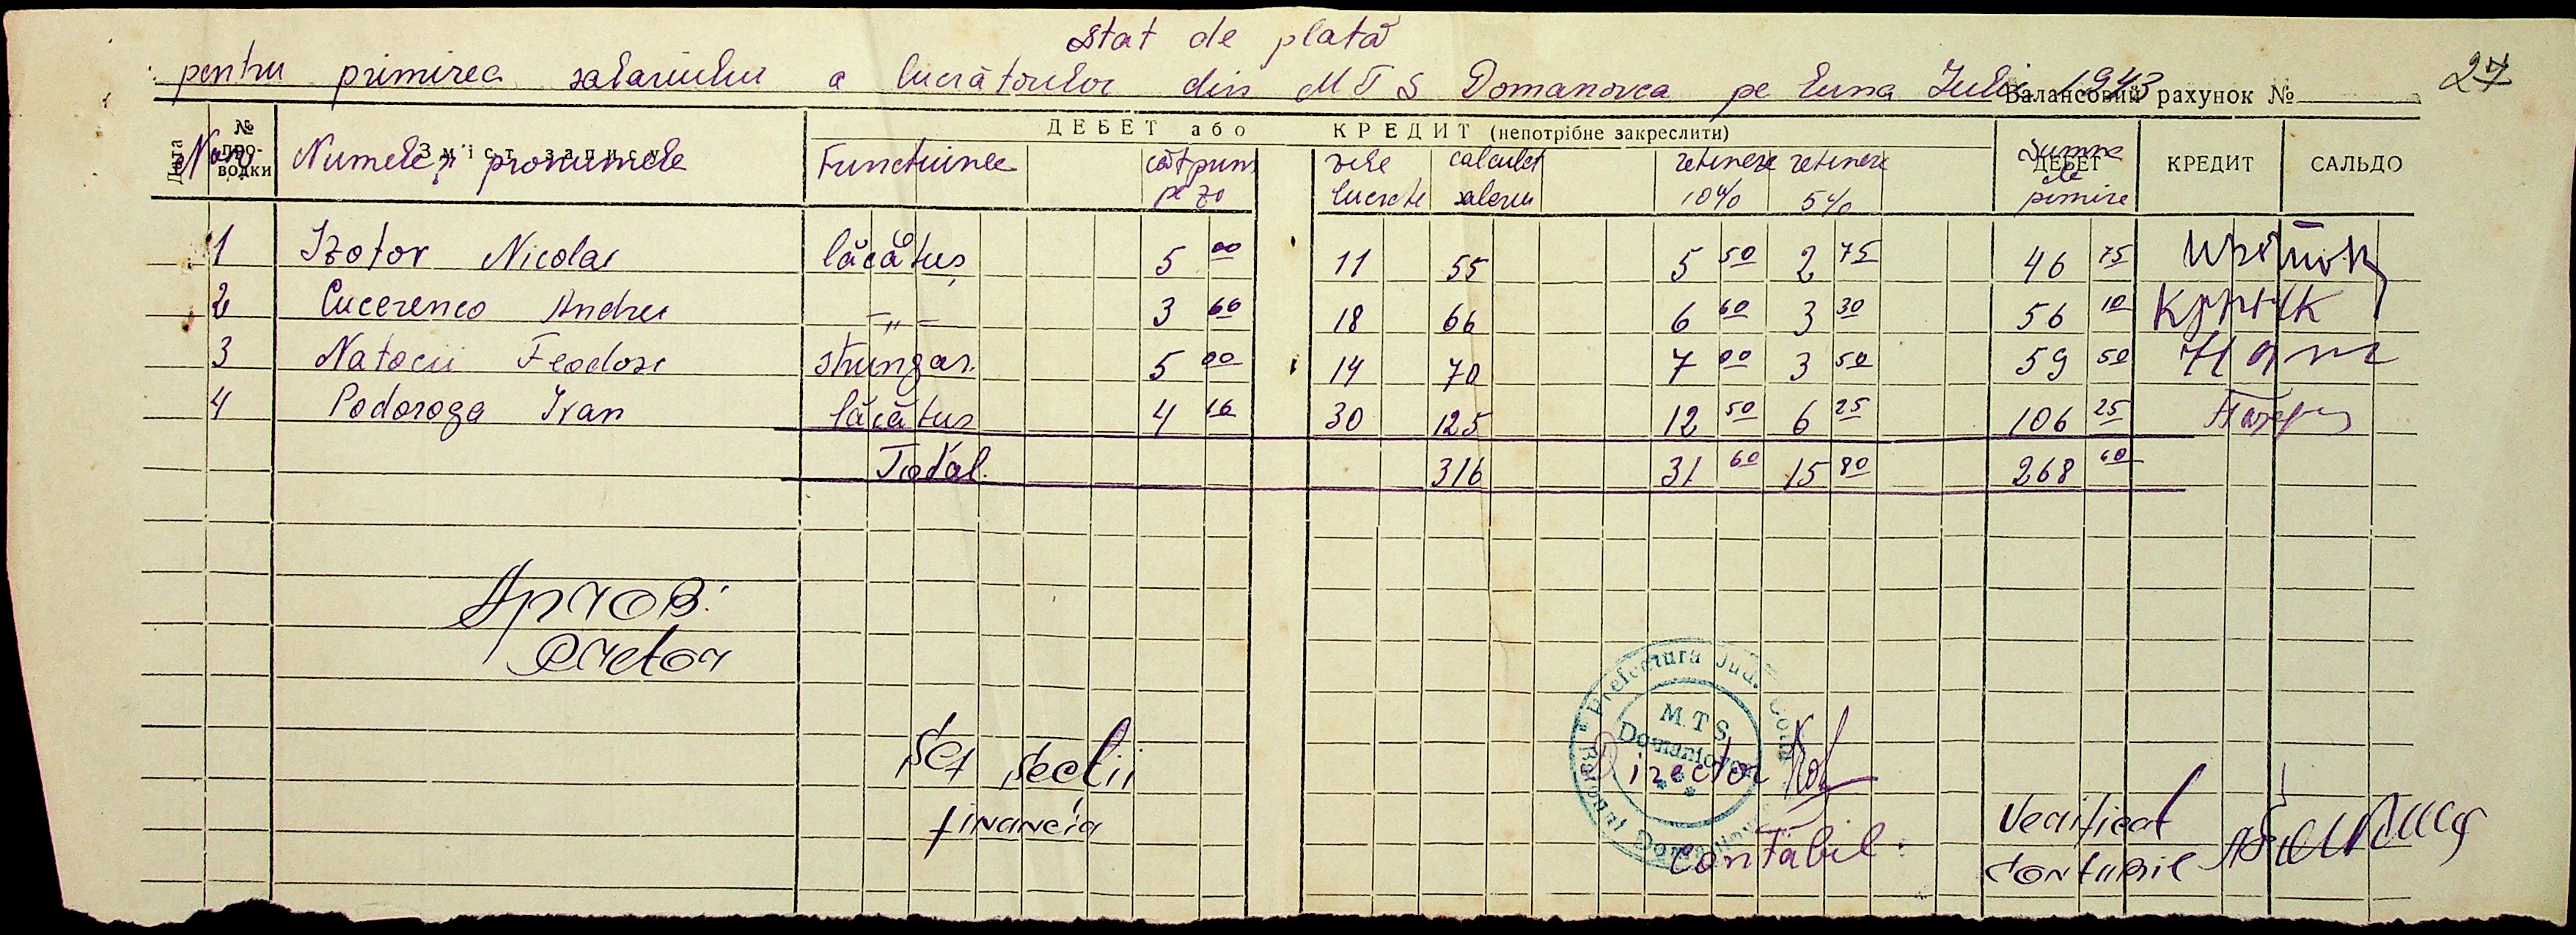 Stat de plată
pentru primirea salariului a lucrătorilor din MTS Domanovca pe luna Iulie 1943
Балансовий рахунок №
27
Дата № про-водки Зміст запису ДЕБЕТ або КРЕДИТ (непотрібне закреслити) ДЕБЕТ КРЕДИТ САЛЬДО
Numele și pronumele Functiunea cât prim pe zi zile lucrate calculat salariu retinere 10% retinere 5% Summa de primire
1 Izotov Nicolai lăcătuș 5 00 11 55 5 50 2 75 46 75
2 Cucerenco Andrei -"- 3 66 18 66 6 60 3 30 56 10
3 Natocii Feodosi strungar. 5 00 14 70 7 00 3 50 59 50
4 Podoroga Ivan lăcătus 4 16 30 125 12 50 6 25 106 25
Total. 316 31 60 15 80 268 60
Aprob:
Pretor
Șef secții
financia
Prefectura Jud. Golta
M.T.S.
Domaniovca
Director
Contabil:
Verificat
Contabil